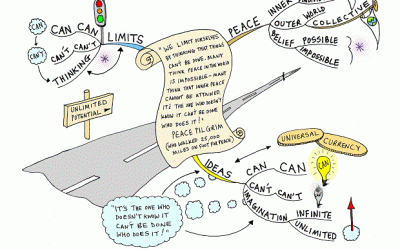 CAN
CAN'T
CAN CAN
CAN'T CAN'T
THINKING
LIMITS
PEACE
INNER
OUTER WORLD
COLLECTIVE
BELIEF POSSIBLE
IMPOSSIBLE
"WE LIMIT OURSELVES
BY THINKING THAT THINGS
CAN'T BE DONE. MANY
THINK PEACE IN THE WORLD
IS IMPOSSIBLE - MANY
THINK THAT INNER PEACE
CANNOT BE ATTAINED.
IT'S THE ONE WHO DOESN'T
KNOW IT CAN'T BE DONE
WHO DOES IT!"
PEACE PILGRIM
(WHO WALKED 25,000
MILES ON FOOT FOR PEACE)
UNLIMITED
POTENTIAL
UNIVERSAL
CURRENCY
IDEAS
CAN CAN
CAN
CAN'T CAN'T
IMAGINATION
INFINITE
UNLIMITED
"IT'S THE ONE WHO
DOESN'T KNOW IT
CAN'T BE DONE
WHO DOES IT!"